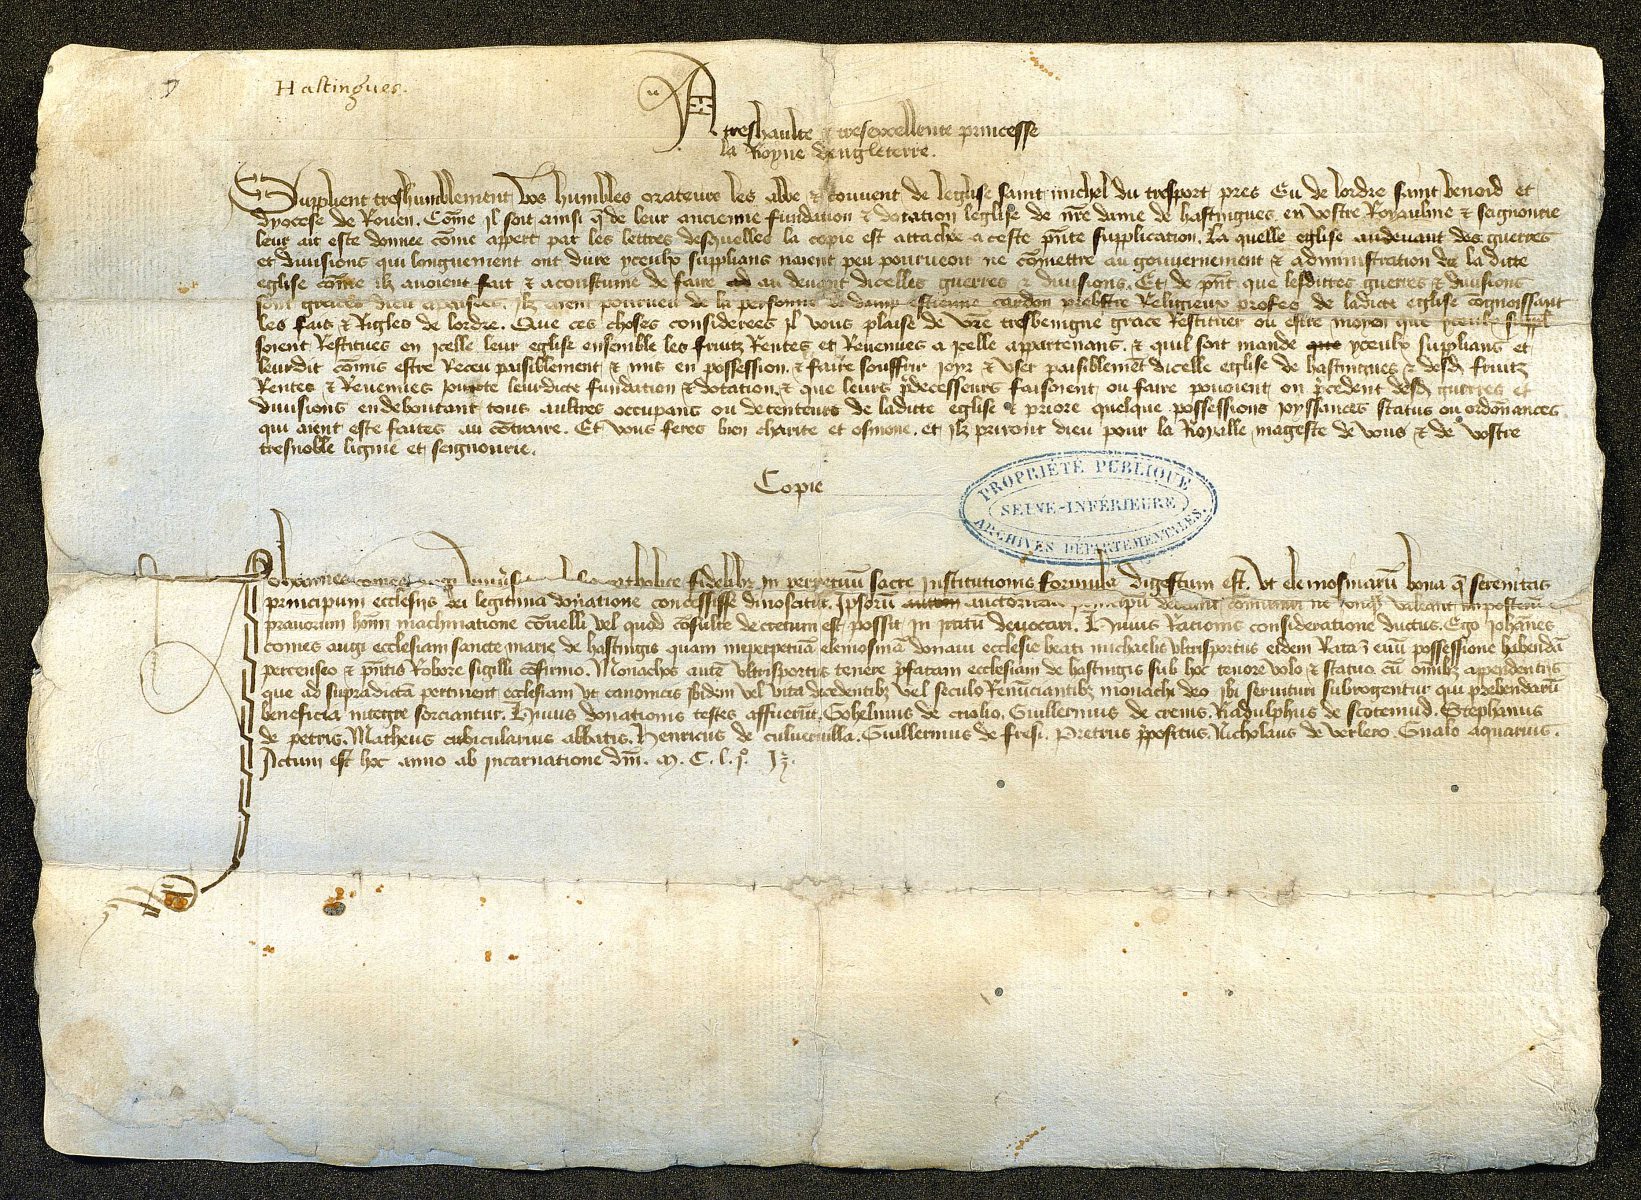 Hastingues.
A treshaulte & tresexcellente princesse
la Royne dengleterre.
Supplient treshumblement vos humbles orateurs les abbe & couvent de leglise saint michel du tresport pres Eu de lordre saint benoid et
dyocese de Rouen. Come il soit ainsi q de leur ancienne fundation & dotation leglise de nre dame de hastingues en vostre Royaulme & seignourie
leur ait este donnee come appert par les lettres desquelles la copie est attachee a ceste pnte supplication. La quelle eglise audevant des guerres
et divisions qui longuement ont dure yceulx supplians naient peu pourveoir ne comettre au gouvernement & administration de la ditte
eglise come ilz avoient fait & acoustume de faire au devant dicelles guerres & divisions. Et de pnt que lesdittes guerres & divisions
sont graces dieu apaisees. ilz aient pourveu de la personne de damp estienne cardon prebstre Religieux profes de ladicte eglise cognoissant
les fais & Rigles de lordre. Que ces choses considerees il vous plaise de vre tresbenigne grace Restituer ou estre moyen que yceulx suppl
soient Restitues en icelle leur eglise ensemble les fruitz Rentes et Revenues a icelle appartenans. & quil soit mande yceulx supplians et
leurdit comis estre Receu paisiblement & mis en possession. & faire souffrir joyr & user paisiblemet dicelle eglise de hastingues & desd fruitz
Rentes & Revenues jouxte leurdicte fundation & dotation. & que leurs pdecesseurs faisoient ou faire povoient ou pcedent desd guerres et
divisions en deboutant tous aultres occupans ou detenteurs de laditte eglise & priore quelque possessions joyssances status ou ordonances
qui aient este faites au contraire. Et vous feres bien charite et osmone. et ilz priront dieu pour la Royalle mageste de vous & de vostre
tresnoble lignie et seignourie.
Copie
PROPRIÉTÉ PUBLIQUE
SEINE-INFÉRIEURE
ARCHIVES DÉPARTEMENTALES.
Johannes comes augi catholice fidelibz in perpetuu sacre institutionis formula digestum est. Ut elemosinaru bona q serenitas
principum ecclesiis dei legitima donatione concessisse dinoscitur. Ipsoru auctoritate ne valeant imposteru
pravorum hoim machinatione covelli vel quod cosulte decretum est possit in irritu devocari. Huius Racionis consideratione ductus. Ego Johanes
comes augi ecclesiam sancte marie de hastingis quam inperpetua elemosina donavi ecclesie beati michaelis ultrisportus eidem Rata possessione habenda
percenseo & pntis Robore sigilli cofirmo. Monachos aute ultrisportus tenere pfatam ecclesiam de hastingis sub hoc tenore volo & statuo. cu omibz appendentiis
que ad supradicta pertinent ecclesiam ut canonicis ibidem vel vita decedentibz vel seculo Renuciantibz monachi deo ibi servituri subrogentur qui prebendaru
beneficia integre sorciantur. Huius donationis testes affuerut. Gohelmus de criolio. Guillermus de crens. Radulphus de scotemud. Stephanus
de petris. Matheus cubicularius abbatis. Henricus de culvertvilla. Guillermus de fresi. Pretrus ppositus. Nicholaus de verlero. Gualo aquarius.
Actum est hoc anno ab incarnatione dni. M. C. l. jo.